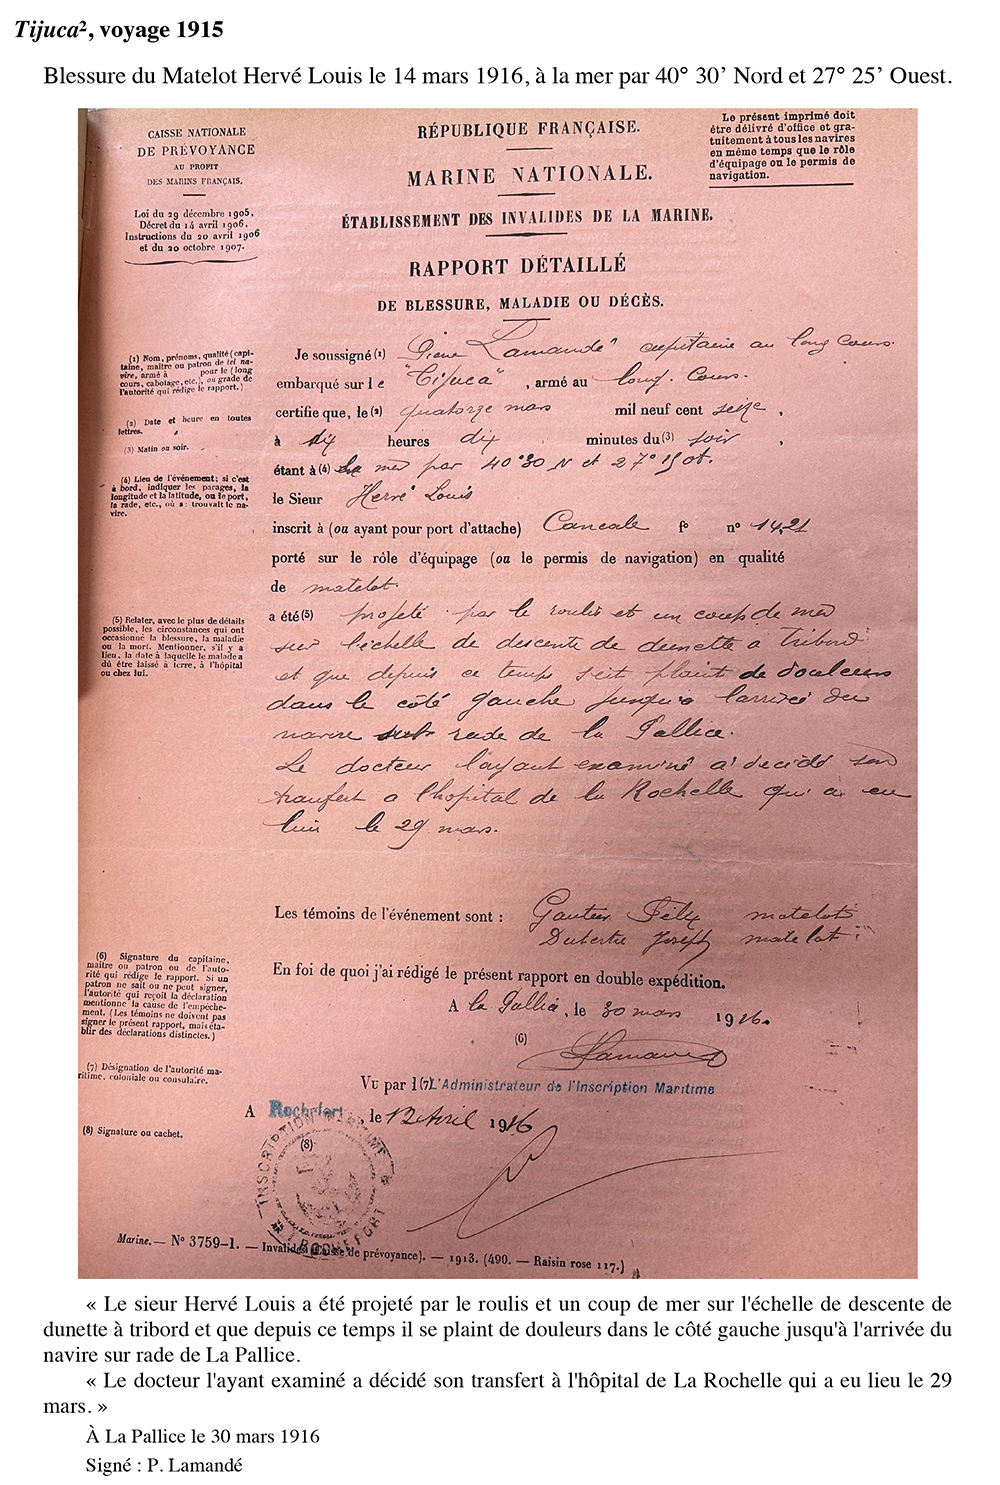 Tijuca², voyage 1915
Blessure du Matelot Hervé Louis le 14 mars 1916, à la mer par 40° 30’ Nord et 27° 25’ Ouest.
CAISSE NATIONALE
DE PRÉVOYANCE
AU PROFIT
DES MARINS FRANÇAIS.
Loi du 29 décembre 1905,
Décret du 14 avril 1906,
Instructions du 20 avril 1906
et du 20 octobre 1907.
RÉPUBLIQUE FRANÇAISE.
MARINE NATIONALE.
ÉTABLISSEMENT DES INVALIDES DE LA MARINE.
RAPPORT DÉTAILLÉ
DE BLESSURE, MALADIE OU DÉCÈS.
Le présent imprimé doit
être délivré d'office et gra-
tuitement à tous les navires
en même temps que le rôle
d'équipage ou le permis de
navigation.
(1) Nom, prénoms, qualité (capi-
taine, maître ou patron de tel na-
vire, armé à pour le (long
cours, cabotage, etc.), ou grade de
l'autorité qui rédige le rapport.)
(2) Date et heure en toutes
lettres.
(3) Matin ou soir.
(4) Lieu de l'événement; si c'est
à bord, indiquer les parages, la
longitude et la latitude, ou le port,
la rade, etc., où se trouvait le na-
vire.
(5) Relater, avec le plus de détails
possible, les circonstances qui ont
occasionné la blessure, la maladie
ou la mort. Mentionner, s'il y a
lieu, la date à laquelle le malade a
dû être laissé à terre, à l'hôpital
ou chez lui.
(6) Signature du capitaine,
maître ou patron ou de l'auto-
rité qui rédige le rapport. Si un
patron ne sait ou ne peut signer,
l'autorité qui reçoit la déclaration
mentionne la cause de l'empêche-
ment. (Les témoins ne doivent pas
signer le présent rapport, mais éta-
blir des déclarations distinctes.)
(7) Désignation de l'autorité ma-
ritime, coloniale ou consulaire.
(8) Signature ou cachet.
Je soussigné (1) Pierre Lamandé capitaine au long cours.
embarqué sur le "Tijuca", armé au long. Cours.
certifie que, le (2) quatorze mars mil neuf cent seize,
à dix heures dix minutes du (3) soir,
étant à (4) la mer par 40°30 N et 27° Ot.
le Sieur Hervé Louis
inscrit à (ou ayant pour port d'attache) Cancale fo no 1421
porté sur le rôle d'équipage (ou le permis de navigation) en qualité
de matelot.
a été (5) projeté par le roulis et un coup de mer
sur l'échelle de descente de dunette a tribord
et que depuis ce temps plaint de douleurs
dans le côté gauche jusqu'a larrivée du
navire sur rade de la Pallice.
Le docteur l'ayant examiné a décidé son
tranfert a l'hopital de la Rochelle qui a eu
lieu le 29 mars.
Les témoins de l'événement sont : Gautier Félix matelot
Joseph matelot
En foi de quoi j'ai rédigé le présent rapport en double expédition.
A la Pallice, le 30 mars 1916.
(6)
Lamandé
Vu par l (7) L'Administrateur de l'Inscription Maritime
A Rochefort, le 12 Avril 1916
(8)
INSCRIPTION MARITIME
ROCHEFORT
Marine. — No 3759-1. — Invalides (Caisse de prévoyance). — 1913. (490. — Raisin rose 117.)
« Le sieur Hervé Louis a été projeté par le roulis et un coup de mer sur l'échelle de descente de
dunette à tribord et que depuis ce temps il se plaint de douleurs dans le côté gauche jusqu'à l'arrivée du
navire sur rade de La Pallice.
« Le docteur l'ayant examiné a décidé son transfert à l'hôpital de La Rochelle qui a eu lieu le 29
mars. »
À La Pallice le 30 mars 1916
Signé : P. Lamandé